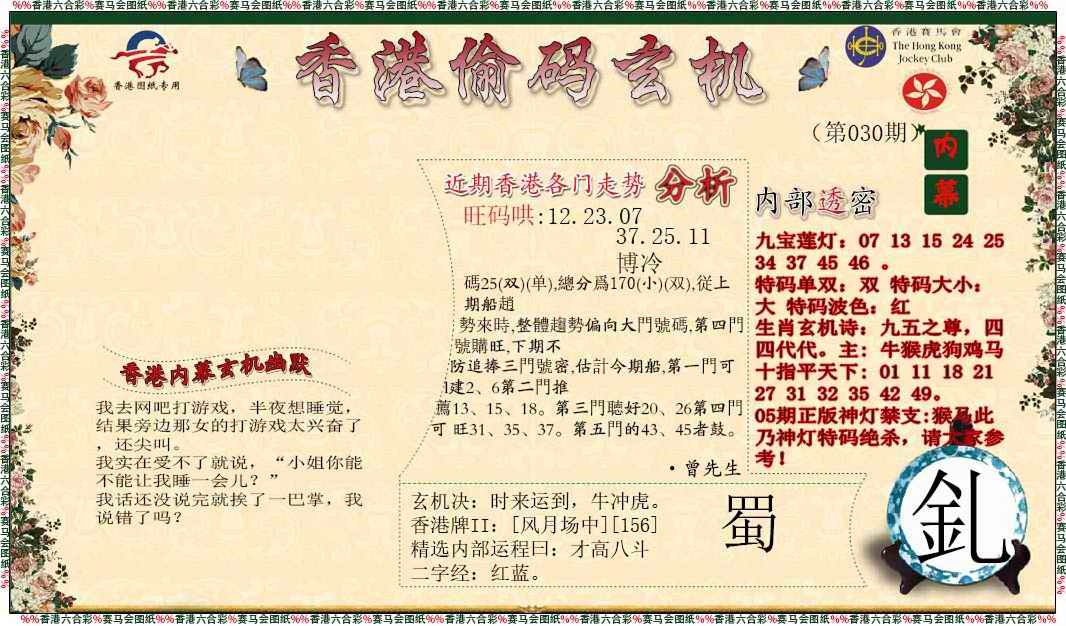 %%香港六合彩%赛马会图纸%%香港六合彩%赛马会图纸%%香港六合彩%赛马会图纸%%香港六合彩%赛马会图纸%%香港六合彩%赛马会图纸%%香港六合彩%赛马会图纸%%香港六合彩%%
香港图纸专用
香港偷码玄机
香港賽馬會
The Hong Kong
Jockey Club
(第030期)
内
幕
近期香港各门走势 分析
旺码哄:12.23.07
37.25.11
博冷
碼25(双)(单),總分爲170(小)(双),従上
期船趙
勢來時,整體趨勢偏向大門號碼,第四門
號購旺,下期不
防追捧三門號密,估計今期船,第一門可
建2、6第二門推
薦13、15、18。第三門聽好20、26第四門
可 旺31、35、37。第五門的43、45者鼓。
·曾先生
内部透密
九宝莲灯：07 13 15 24 25
34 37 45 46 。
特码单双：双 特码大小：
大 特码波色：红
生肖玄机诗：九五之尊，四
四代代。主：牛猴虎狗鸡马
十指平天下：01 11 18 21
27 31 32 35 42 49。
05期正版神灯禁支:猴马此
乃神灯特码绝杀，请大家参
考！
香港内幕玄机幽默
我去网吧打游戏，半夜想睡觉，
结果旁边那女的打游戏太兴奋了
，还尖叫。
我实在受不了就说，“小姐你能
不能让我睡一会儿？”
我话还没说完就挨了一巴掌，我
说错了吗？
玄机决：时来运到，牛冲虎。
香港牌II：[风月场中][156]
精选内部运程曰：才高八斗
二字经：红蓝。
蜀
釓
%%香港六合彩%赛马会图纸%%香港六合彩%赛马会图纸%%香港六合彩%赛马会图纸%%香港六合彩%赛马会图纸%%香港六合彩%赛马会图纸%%香港六合彩%赛马会图纸%%香港六合彩%%